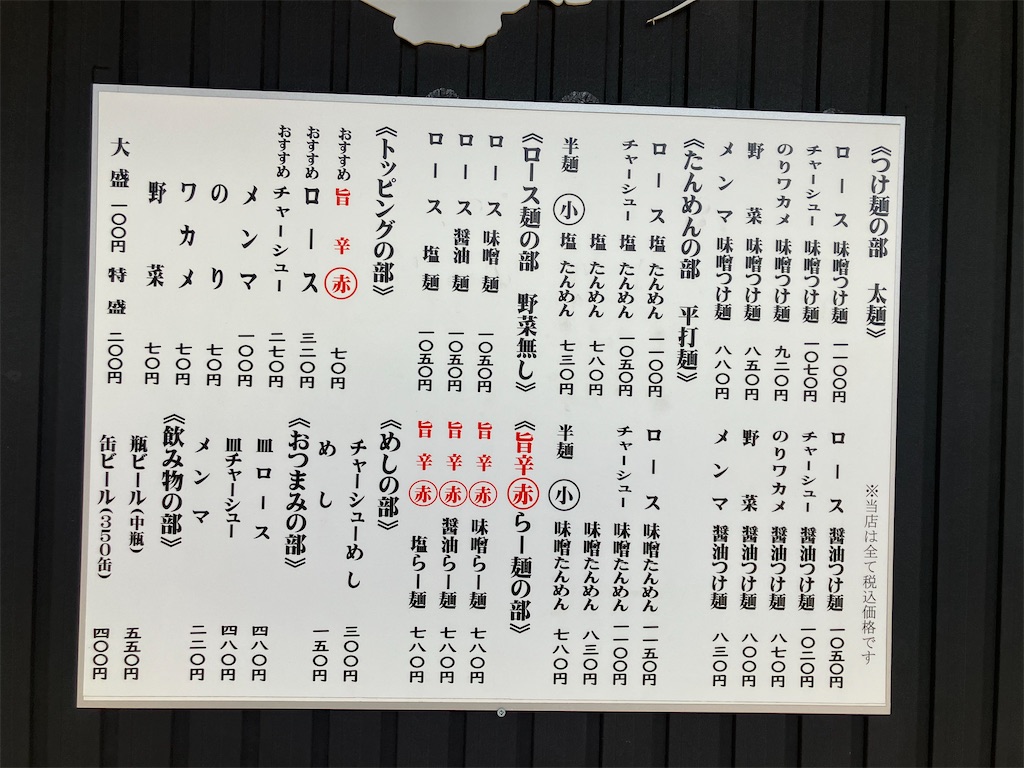 《つけ麺の部　太麺》
ロース 味噌つけ麺 一一〇〇円
チャーシュー 味噌つけ麺 一〇七〇円
のりワカメ 味噌つけ麺 九二〇円
野菜 味噌つけ麺 八五〇円
メンマ 味噌つけ麺 八八〇円
※当店は全て税込価格です
ロース 醤油つけ麺 一〇五〇円
チャーシュー 醤油つけ麺 一〇二〇円
のりワカメ 醤油つけ麺 八七〇円
野菜 醤油つけ麺 八〇〇円
メンマ 醤油つけ麺 八三〇円
《たんめんの部　平打麺》
ロース 塩 たんめん 一一〇〇円
チャーシュー 塩 たんめん 一〇五〇円
塩 たんめん 七八〇円
半麺 小 塩 たんめん 七三〇円
ロース 味噌たんめん 一一五〇円
チャーシュー 味噌たんめん 一一〇〇円
味噌たんめん 八三〇円
半麺 小 味噌たんめん 七八〇円
《ロース麺の部　野菜無し》
ロース 味噌麺 一〇五〇円
ロース 醤油麺 一〇五〇円
ロース 塩麺 一〇五〇円
《旨辛赤らー麺の部》
旨辛赤 味噌らー麺 七八〇円
旨辛赤 醤油らー麺 七八〇円
旨辛赤 塩らー麺 七八〇円
《トッピングの部》
おすすめ 旨辛赤 七〇円
おすすめ ロース 三二〇円
おすすめ チャーシュー 二七〇円
メンマ 一〇〇円
のり 七〇円
ワカメ 七〇円
野菜 七〇円
大盛 一〇〇円 特盛 二〇〇円
《めしの部》
チャーシューめし 三〇〇円
めし 一五〇円
《おつまみの部》
皿ロース 四八〇円
皿チャーシュー 四八〇円
メンマ 二二〇円
《飲み物の部》
瓶ビール(中瓶) 五五〇円
缶ビール(350缶) 四〇〇円